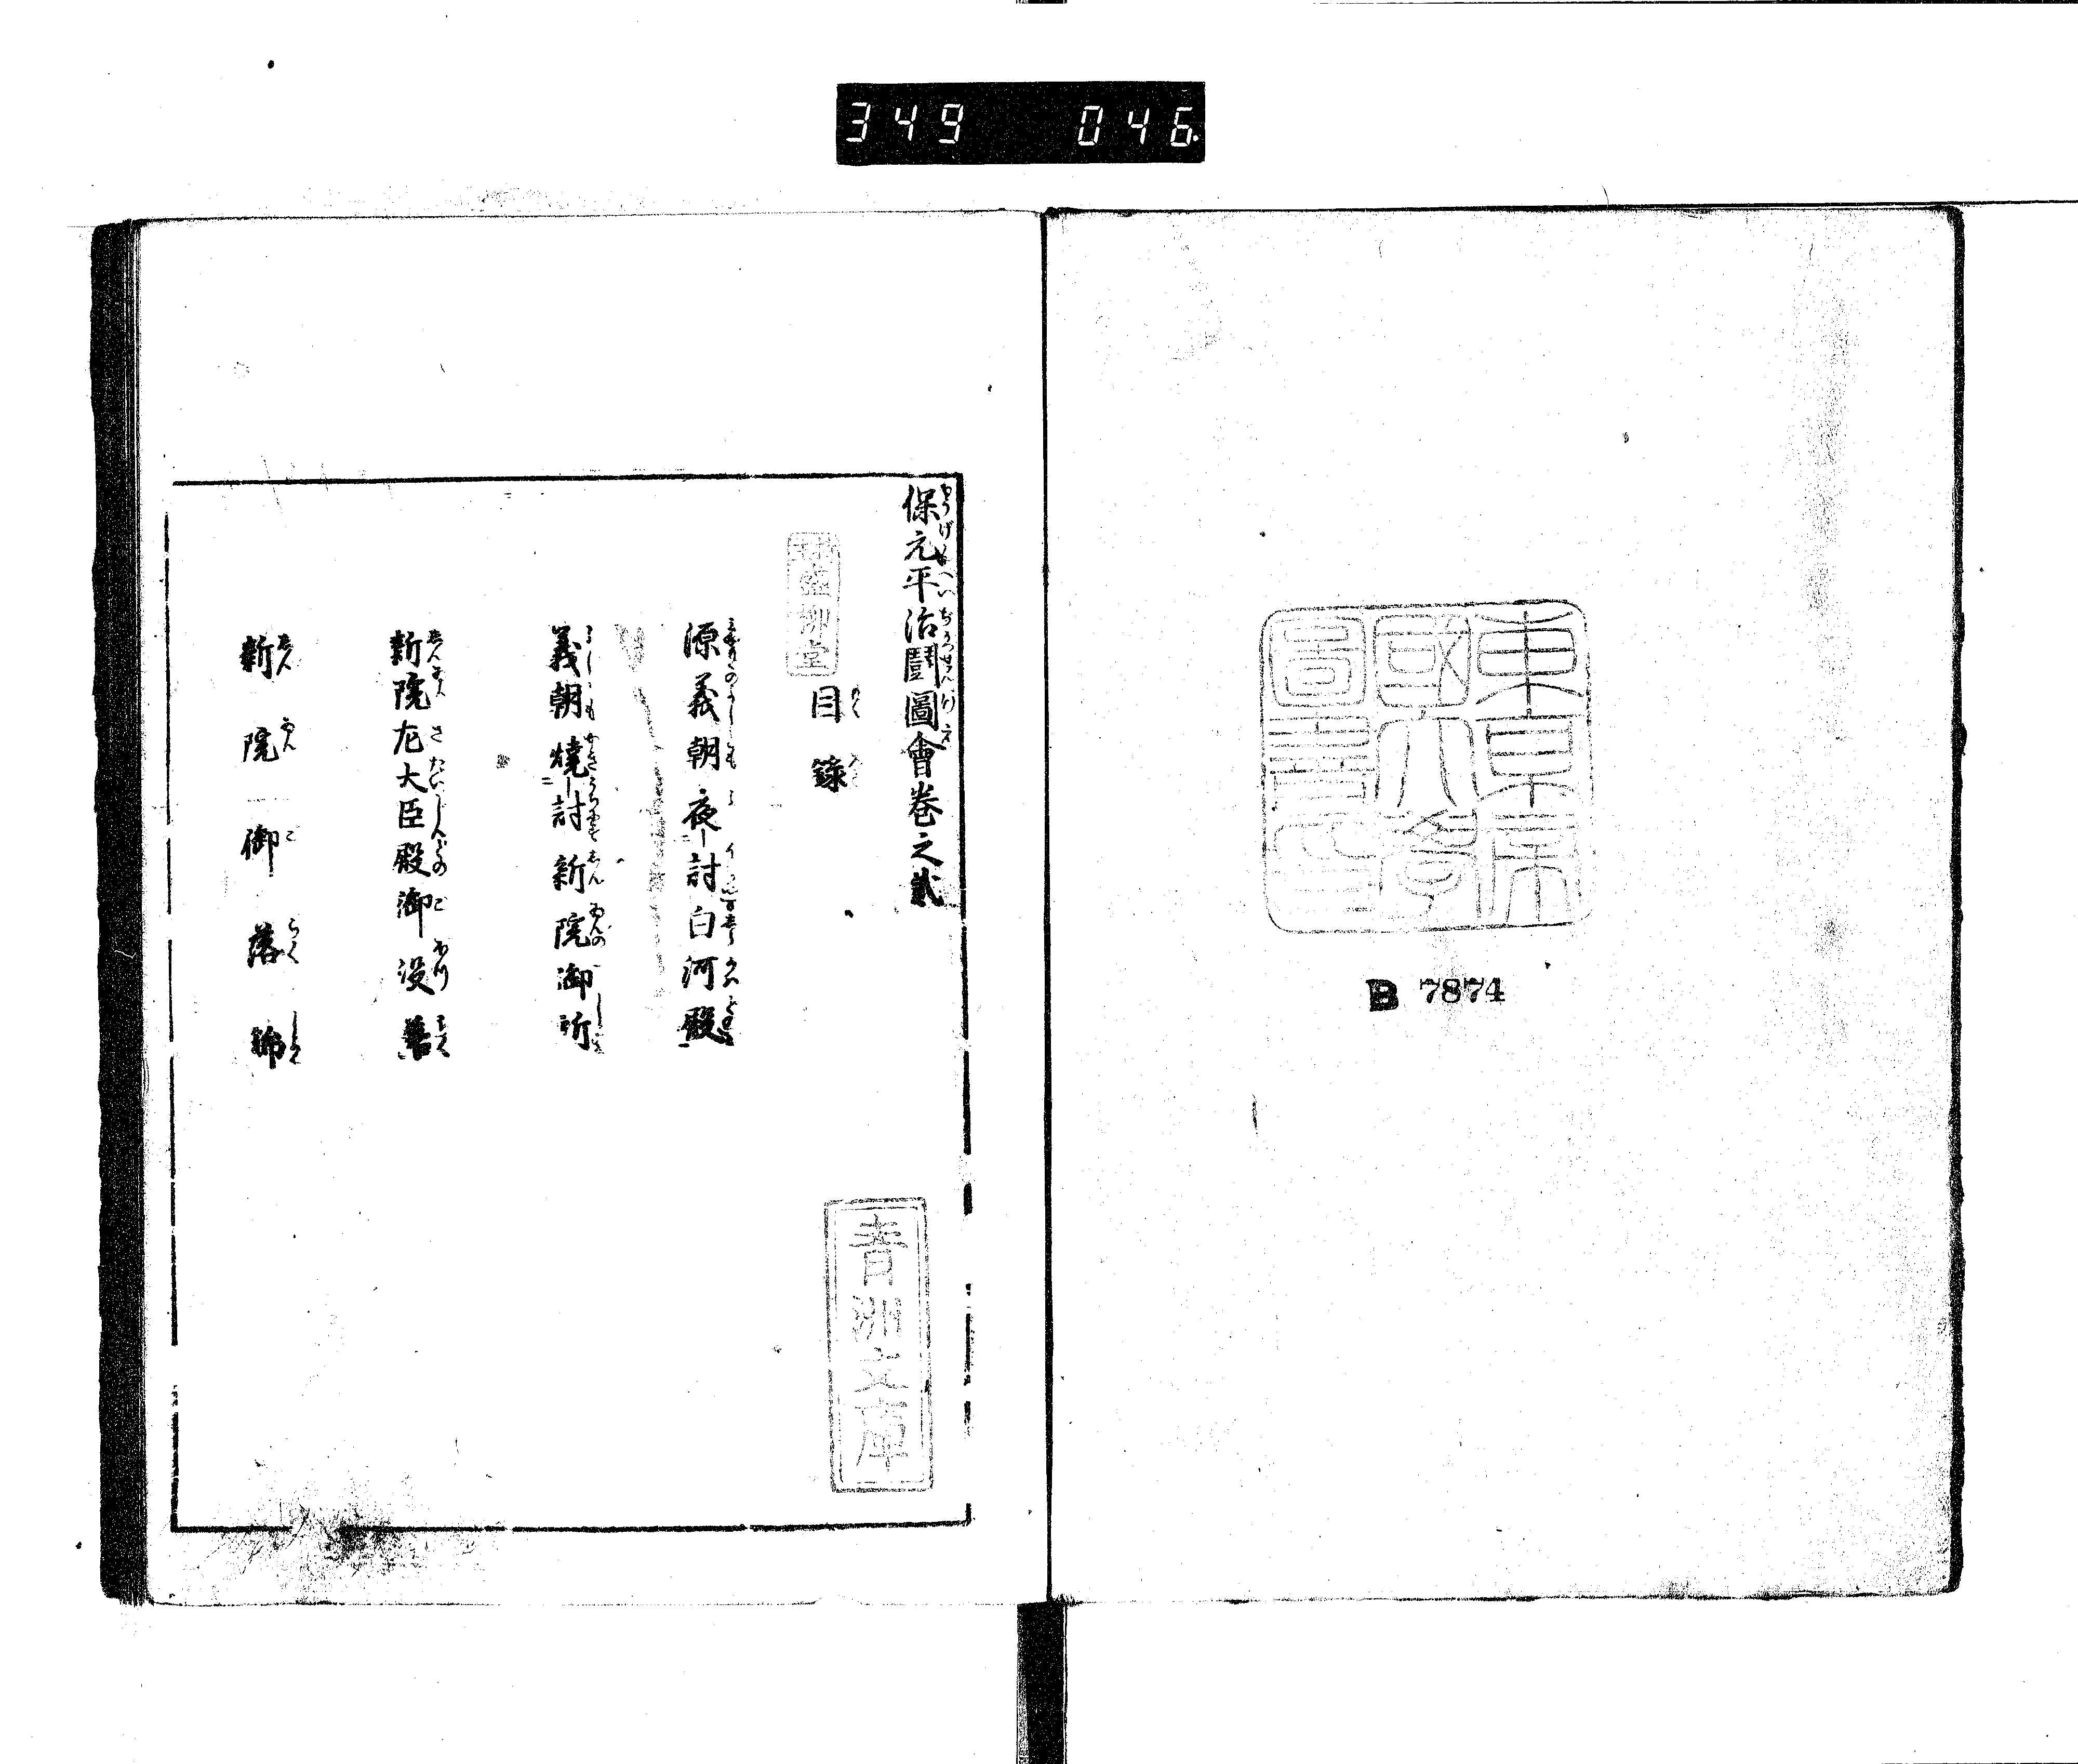 349 046
東京帝
國大學
圖書印
B 7874
保元平治鬪圖會卷之貳
目錄
源義朝夜討白河殿
義朝燒討新院御所
新院左大臣殿御没落
新院御落飾
青洲文庫